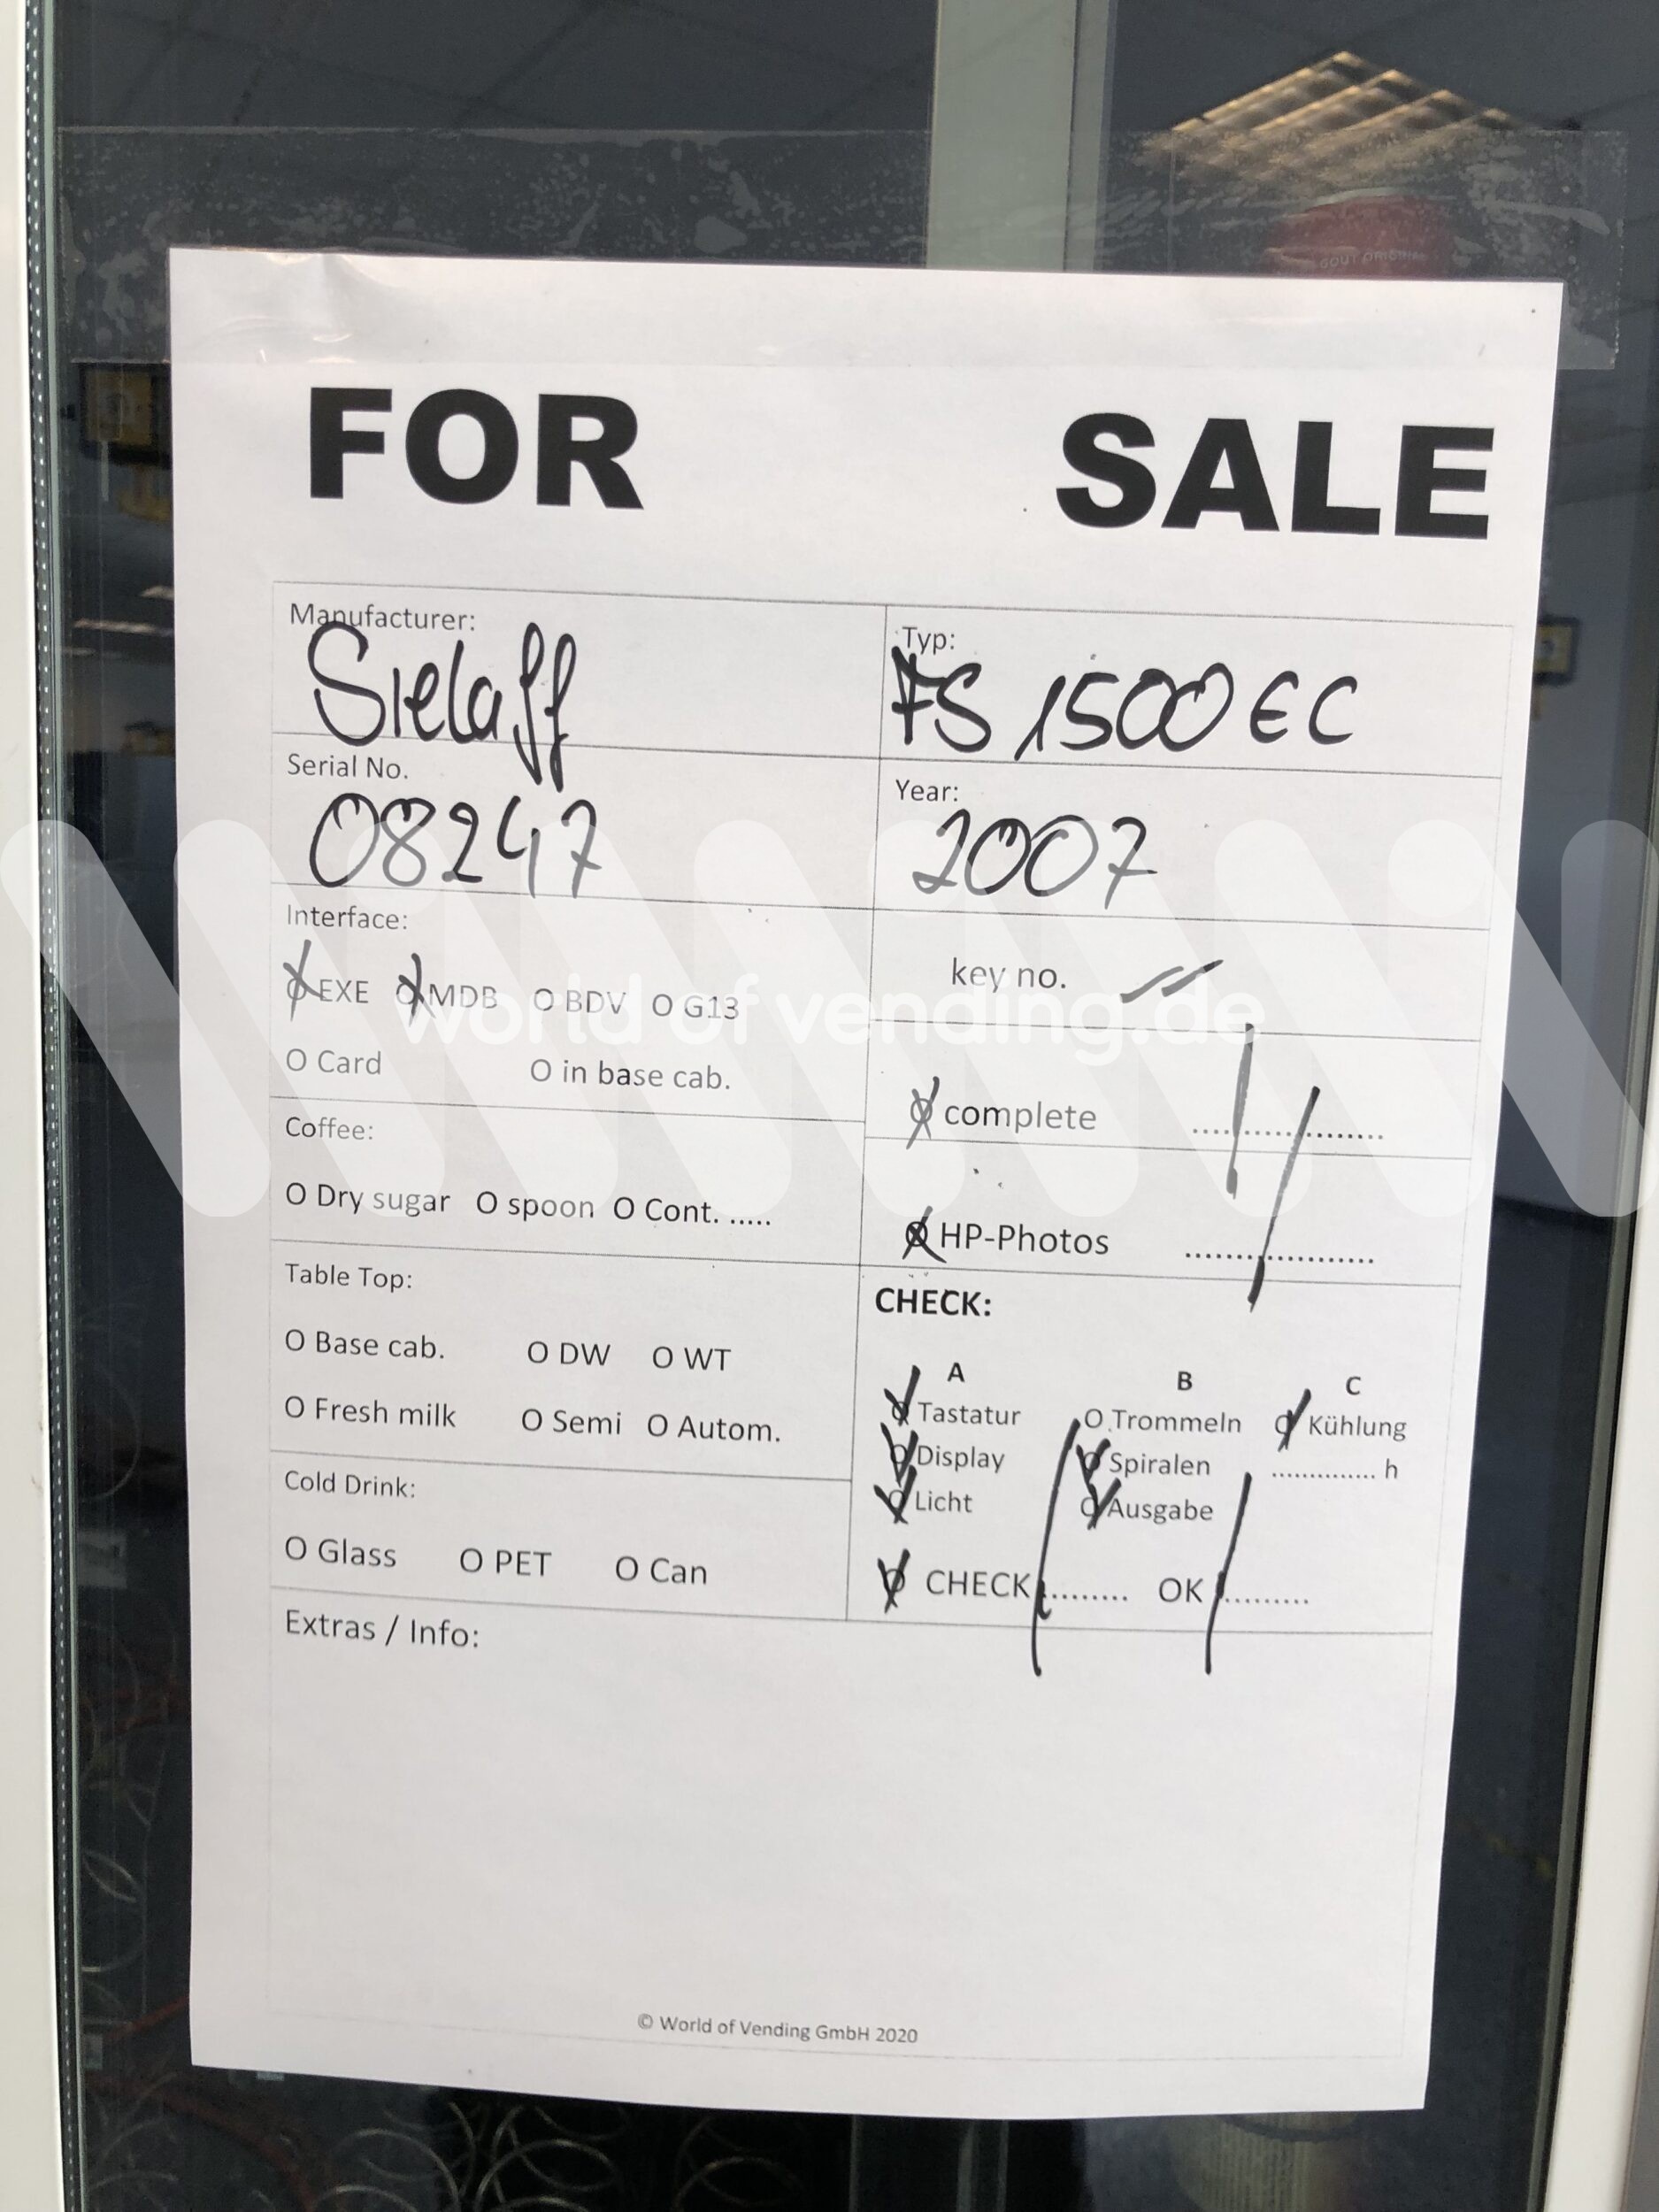 GOUT ORIGINAL
FOR SALE
Manufacturer:
Sielaff
Typ:
FS 1500 EC
Serial No.
08247
Year:
2007
Interface:
O EXE O MDB O BDV O G13
O Card O in base cab.
key no.
O complete ....................
O HP-Photos ....................
Coffee:
O Dry sugar O spoon O Cont. .....
Table Top:
O Base cab. O DW O WT
O Fresh milk O Semi O Autom.
Cold Drink:
O Glass O PET O Can
CHECK:
A B C
O Tastatur O Trommeln O Kühlung
O Display O Spiralen .............. h
O Licht O Ausgabe
O CHECK .......... OK ..........
Extras / Info:
© World of Vending GmbH 2020
world of vending.de